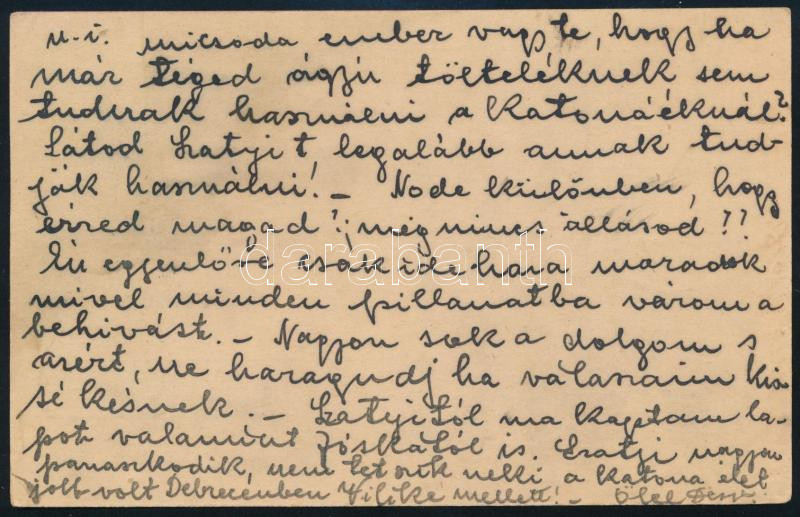 u.i. micsoda ember vagy te, hogy ha
már téged ágjú tölteléknek sem
tudnak használni a katonáéknál?
Látod Szatyit, legalább annak tud-
ják használni! – Node különben, hogy
érzed magad? még nincs állásod??
Én egyenlőre csak ide haza maradok
mivel minden pillanatba várom a
behivást. – Nagyon sok a dolgom s
azért, ne haragudj ha válaszaim kis-
sé késnek. – Szatyitól ma kaptam la-
pot valamint Jóskától is. Szatyi nagyon
panaszkodik, nem tetszik neki a katona élet
jobb volt Debrecenben Vilike mellett! – Ölel Dezső
darabanth